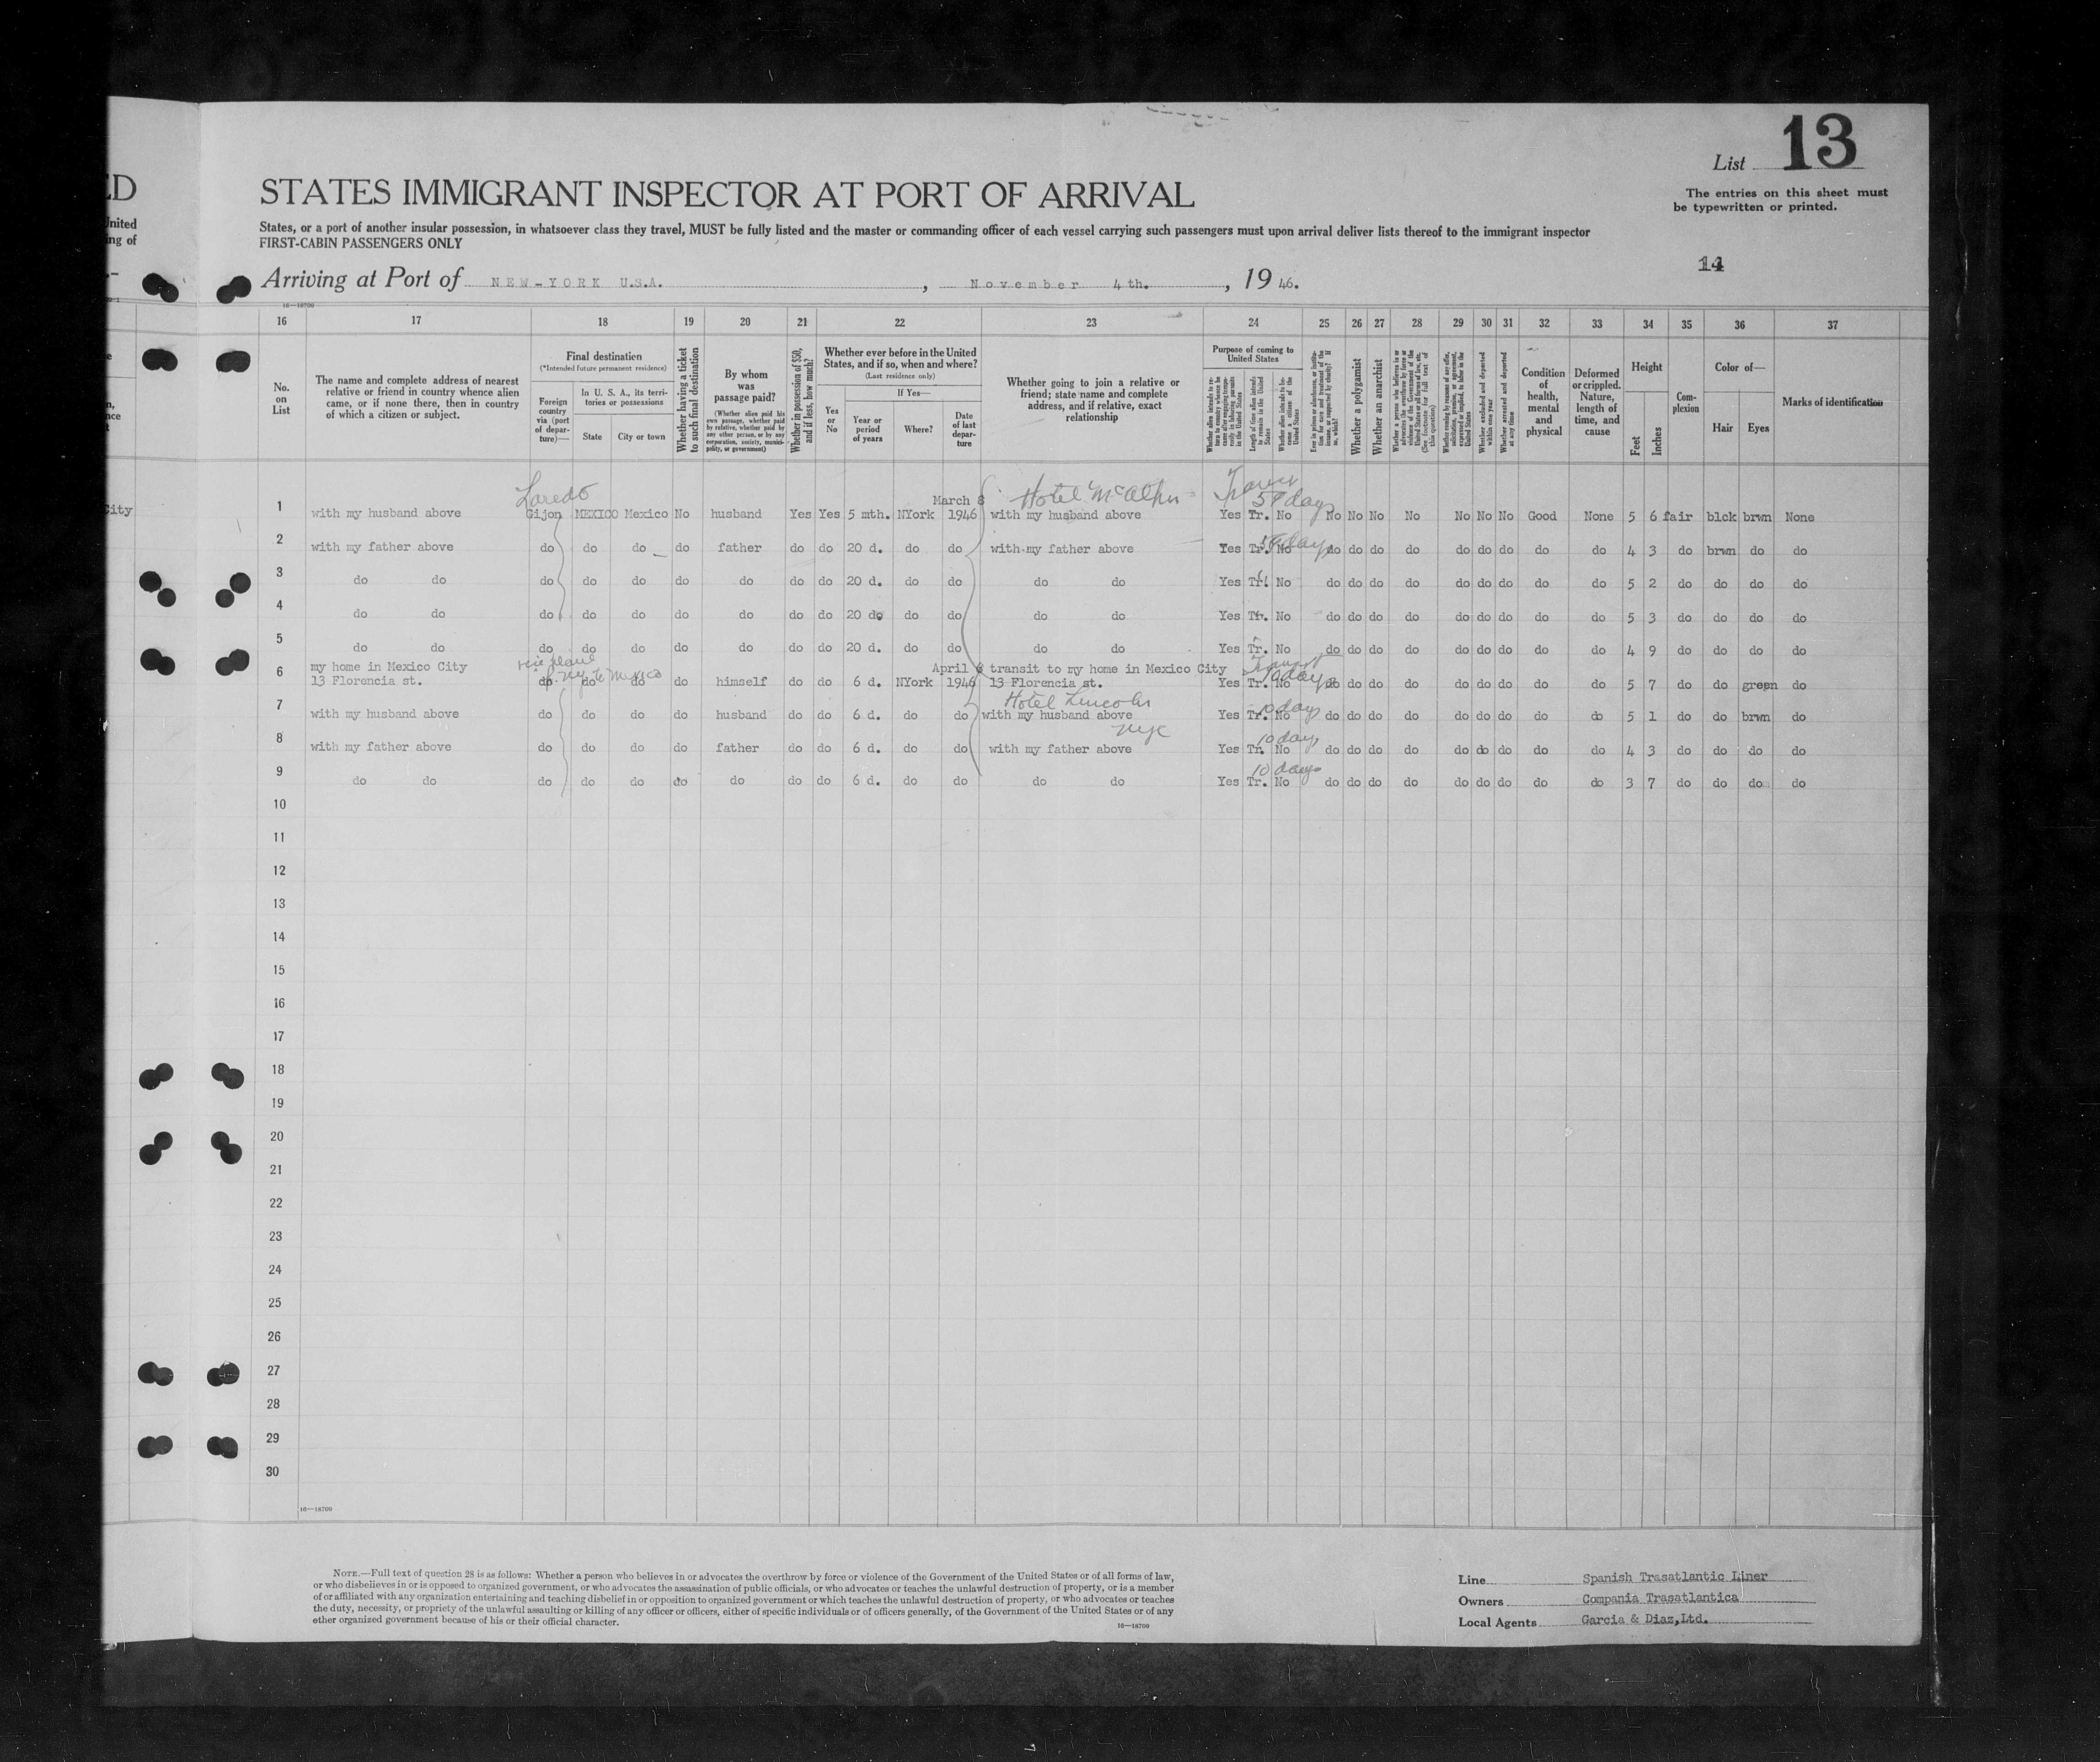 List 13
ED
STATES IMMIGRANT INSPECTOR AT PORT OF ARRIVAL
The entries on this sheet must
be typewritten or printed.
United
ing of
States, or a port of another insular possession, in whatsoever class they travel, MUST be fully listed and the master or commanding officer of each vessel carrying such passengers must upon arrival deliver lists thereof to the immigrant inspector
FIRST-CABIN PASSENGERS ONLY
14
Arriving at Port of NEW-YORK U.S.A. , November 4th. , 1946.
16—18709
16 17 18 19 20 21 22 23 24 25 26 27 28 29 30 31 32 33 34 35 36 37
No. on List
The name and complete address of nearest relative or friend in country whence alien came, or if none there, then in country of which a citizen or subject.
Final destination
(*Intended future permanent residence)
Foreign country via (port of departure)—
In U. S. A., its territories or possessions
State
City or town
Whether having a ticket to such final destination
By whom was passage paid?
(Whether alien paid his own passage, whether paid by relative, whether paid by any other person, or by any corporation, society, municipality, or government)
Whether in possession of $50, and if less, how much?
Whether ever before in the United States, and if so, when and where?
(Last residence only)
Yes or No
If Yes—
Year or period of years
Where?
Date of last departure
Whether going to join a relative or friend; state name and complete address, and if relative, exact relationship
Purpose of coming to United States
Length of time alien intends to remain in the United States
Whether alien intends to become a citizen of the United States
Whether a polygamist
Whether an anarchist
Whether excluded and deported within one year
Whether arrested and deported at any time
Condition of health, mental and physical
Deformed or crippled. Nature, length of time, and cause
Height
Feet
Inches
Complexion
Color of—
Hair
Eyes
Marks of identification
Laredo March 8 Hotel McAlpin
City 1 with my husband above Gijon MEXICO Mexico No husband Yes Yes 5 mth. NYork 1946 with my husband above Yes Tr. No No No No No No No No Good None 5 6 fair blck brwn None
2 with my father above do do do do father do do 20 d. do do with my father above Yes Tr. No do do do do do do do do do 4 3 do brwn do do
3 do do do do do do do do do 20 d. do do do do Yes Tr. No do do do do do do do do do 5 2 do do do do
4 do do do do do do do do do 20 do do do do do Yes Tr. No do do do do do do do do do 5 3 do do do do
5 do do do do do do do do do 20 d. do do do do Yes Tr. No do do do do do do do do do 4 9 do do do do
6 my home in Mexico City April 6 transit to my home in Mexico City
13 Florencia st. do do do do himself do do 6 d. NYork 1946 13 Florencia st. Yes Tr. No do do do do do do do do do 5 7 do do green do
Hotel Lincoln
7 with my husband above do do do do husband do do 6 d. do do with my husband above Yes Tr. No do do do do do do do do do 5 1 do do brwn do
NYC
10 days
8 with my father above do do do do father do do 6 d. do do with my father above Yes Tr. No do do do do do do do do do 4 3 do do do do
10 days
9 do do do do do do do do do 6 d. do do do do Yes Tr. No do do do do do do do do do 3 7 do do do do
10
11
12
13
14
15
16
17
18
19
20
21
22
23
24
25
26
27
28
29
30
16—18709
NOTE.—Full text of question 28 is as follows: Whether a person who believes in or advocates the overthrow by force or violence of the Government of the United States or of all forms of law,
or who disbelieves in or is opposed to organized government, or who advocates the assassination of public officials, or who advocates or teaches the unlawful destruction of property, or is a member
of or affiliated with any organization entertaining and teaching disbelief in or opposition to organized government or which teaches the unlawful destruction of property, or who advocates or teaches
the duty, necessity, or propriety of the unlawful assaulting or killing of any officer or officers, either of specific individuals or of officers generally, of the Government of the United States or of any
other organized government because of his or their official character.
16—18709
Line Spanish Trasatlantic Liner
Owners Compania Trasatlantica
Local Agents Garcia & Diaz,Ltd.